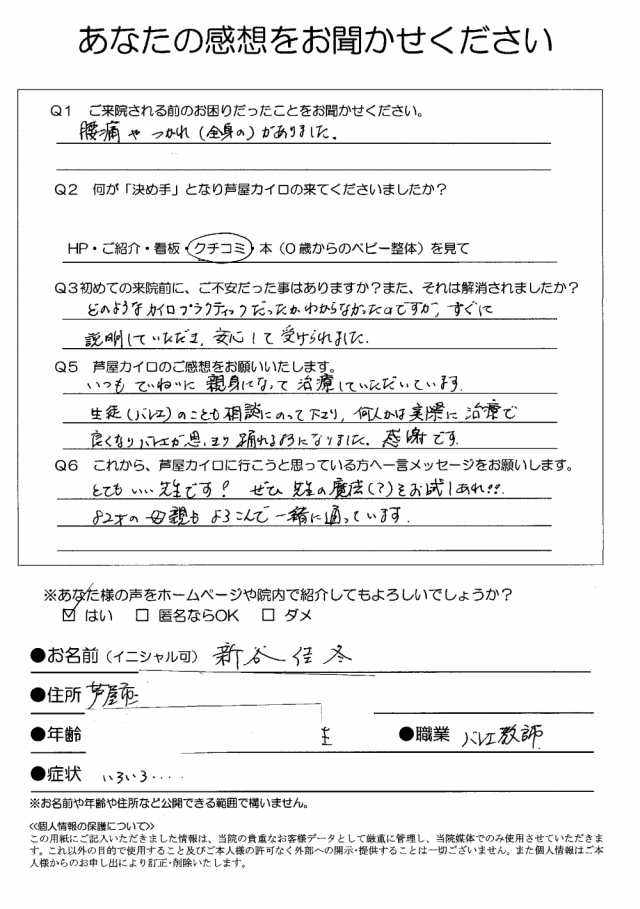 あなたの感想をお聞かせください
Q1 ご来院される前のお困りだったことをお聞かせください。
腰痛や つかれ(全身の)がありました。
Q2 何が「決め手」となり芦屋カイロの来てくださいましたか?
HP・ご紹介・看板・クチコミ・本(0歳からのベビー整体)を見て
Q3初めての来院前に、ご不安だった事はありますか?また、それは解消されましたか?
どのようなカイロプラクティックだったかわからなかったのですが、すぐに
説明していただき、安心して受けられました.
Q5 芦屋カイロのご感想をお願いいたします。
いつも ていねいに 親身になって 治療していただいています.
生徒(バレエ)のことも相談にのって下さり、何人かは実際に治療で
良くなりバレエが思いきり踊れる様になりました、感謝です.
Q6 これから、芦屋カイロに行こうと思っている方へ一言メッセージをお願いします。
とてもいい先生です! ぜひ 先生の魔法(?)をお試しあれ!!.
82才の母親もよろこんで一緒に通っています.
※あなた様の声をホームページや院内で紹介してもよろしいでしょうか?
☑ はい □ 匿名ならOK □ ダメ
●お名前(イニシャル可) 新谷佳冬
●住所 芦屋市
●年齢 ●職業 バレエ教師
●症状 いろいろ・・・・
※お名前や年齢や住所など公開できる範囲で構いません。
≪個人情報の保護について≫
この用紙にご記入いただきました情報は、当院の貴重なお客様データとして厳重に管理し、当院媒体でのみ使用させていただきま
す。これ以外の目的で使用すること及びご本人様の許可なく外部への開示・提供することは一切ございません。また個人情報はご本
人様からのお申し出により訂正・削除いたします。